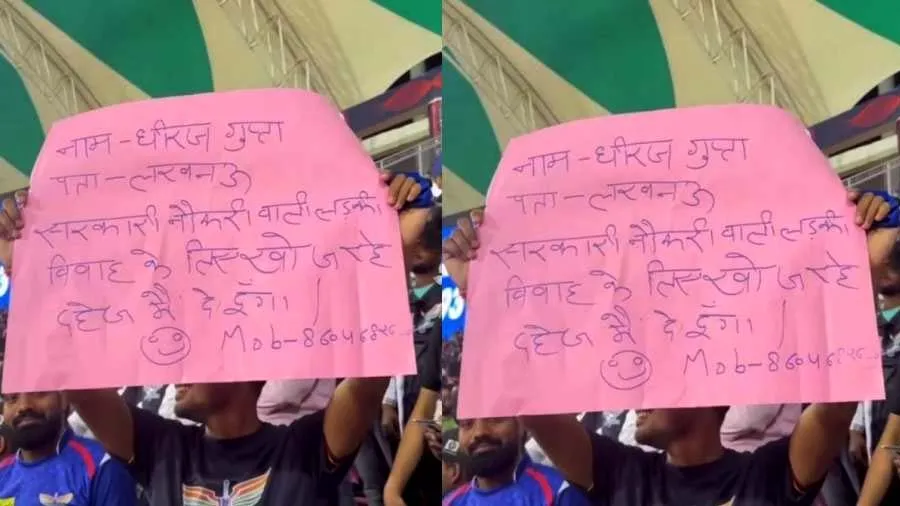 नाम - धीरज गुप्ता
पता - लखनऊ
सरकारी नौकरी वाली लड़की
विवाह के लिए खोज रहे
दहेज मैं दे दूँगा।
Mob-
नाम - धीरज गुप्ता
पता - लखनऊ
सरकारी नौकरी वाली लड़की
विवाह के लिए खोज रहे
दहेज मैं दे दूँगा।
Mob-